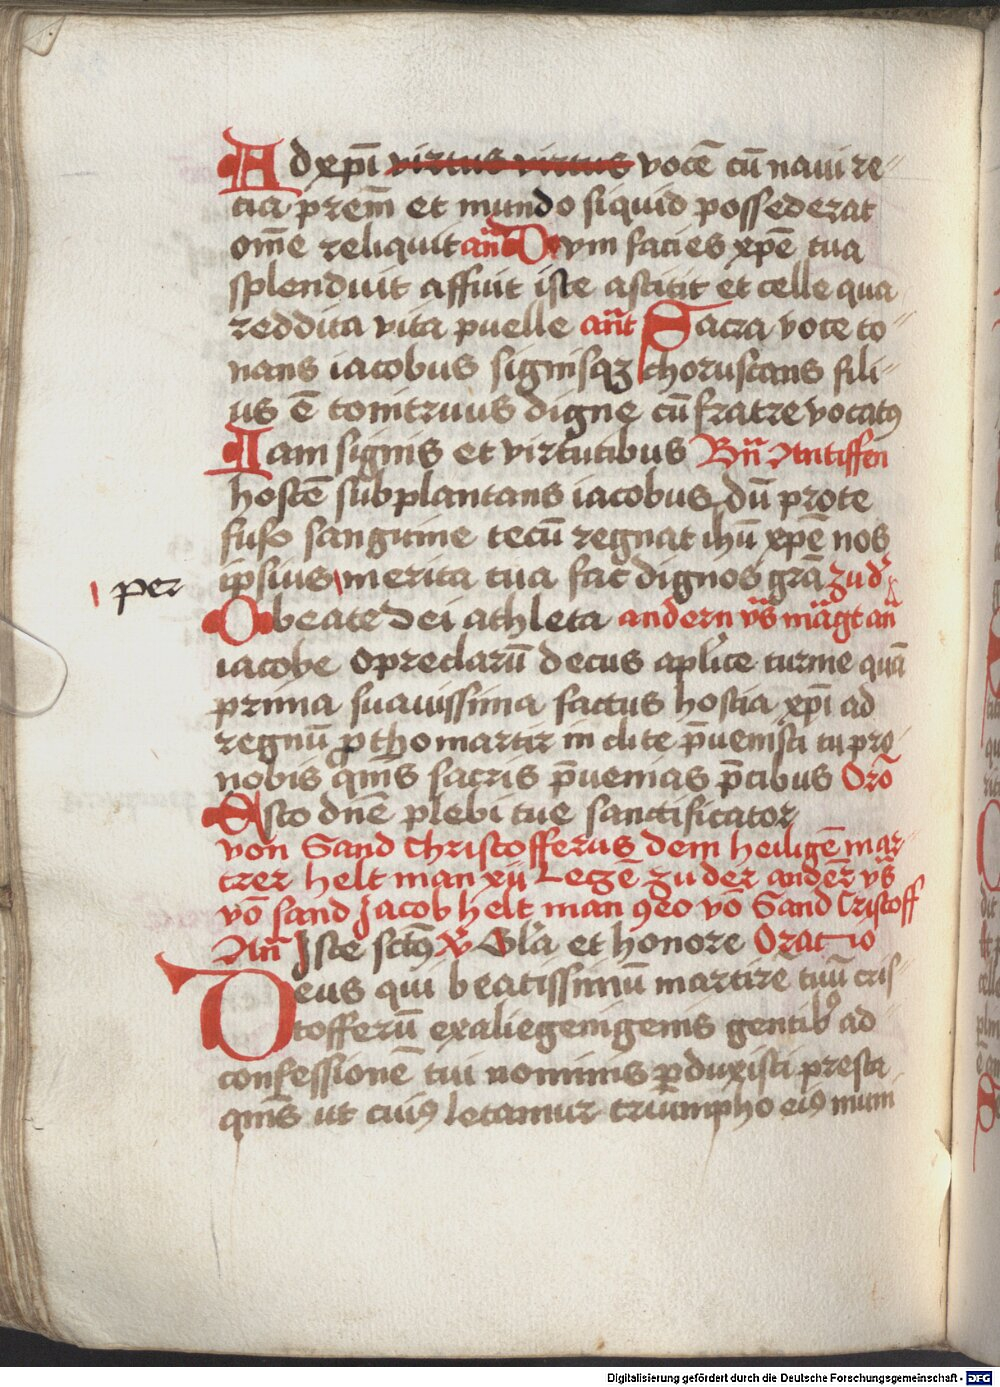 Ad xpi virtus virtus vocē cū naui re-
tia prem̄ et mundo siquid possederat
om̄e reliquit an̄ Dum facies xpē tua
splenduit affuit iste astitit et celle qua
reddita vita puelle an̄t Sacra voce to-
nans iacobus signisqꝫ choruscans fili-
us ē tonitruus digne cū fratre vocatꝰ
Iam signis et virtutibus Bn̄ Antiffen
hostē subplantans iacobus dū prote
fuso sanguine tecū regnat ihū xpē nos
per ipsius merita tua fac dignos grā zu d'
O beate dei athleta andern vs̄ māgt an̄
iacobe o preclarū decus aplice turme quā
prima suauissima factus hostia xpi ad
regnū prothomartir inclite p̄uenisti tu pre
nobis qm̄s sacris p̄uenias p̄cibus Orō
Esto dn̄e plebi tue sanctificator
von Sand Christofferus dem heiligē mar-
trer helt man xij Leczē zu der andēr vs̄
vō sand Jacob helt man 9eo vō Sand Cristoff
An̄ Iste sctūs V̄ Gl'a et honore Oratio
Deus qui beatissimū martirē tuū cris-
tofferū ex aliegenigenis gentibꝰ ad
confessionē tui nominis ꝑduxisti presta
qm̄s ut cuiꝰ letamur triumpho eiꝰ muni
Digitalisierung gefördert durch die Deutsche Forschungsgemeinschaft - DFG